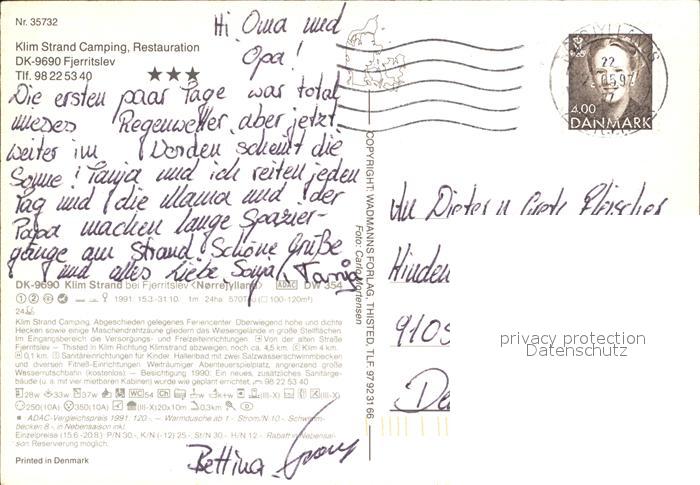 Nr. 35732
Hi Oma und
Opa!
Klim Strand Camping, Restauration
DK-9690 Fjerritslev
Tlf. 98 22 53 40 ★★★
Die ersten paar Tage war total
mieses Regenwetter aber jetzt
weiter im Norden scheint die
Sonne! Tanja und ich reiten jeden
Tag und die Mama und der
Papa machen lange Spazier-
gänge am Strand. Schöne Grüße
und alles Liebe Sonja, Tanja
DK-9690 Klim Strand bei Fjerritslev <Nørrejylland> ADAC DW 354
1991: 15.3.-31.10. 1m 24ha 570T (100-120m²)
24
Klim Strand Camping, Abgeschieden gelegenes Feriencenter. Überwiegend hohe und dichte
Hecken sowie einige Maschendrahtzäune gliedern das Wiesengelände in große Stellflächen.
Im Eingangsbereich die Versorgungs- und Freizeiteinrichtungen. Von der alten Straße
Fjerritslev – Thisted in Klim Richtung Klimstrand abzweigen, noch ca. 4,5 km. Klim 4 km.
0,1 km. Sanitäreinrichtungen für Kinder. Hallenbad mit zwei Salzwasserschwimmbecken
und diversen Fitneß-Einrichtungen. Weträumiger Abenteuerspielplatz, angrenzend große
Wasserrutschbahn (kostenlos). – Besichtigung 1990: Ein neues, zusätzliches Sanitärge-
bäude (u. a. mit vier mietbaren Kabinen) wurde wie geplant errichtet. 98 22 53 40
28w 33w 37w WC54 Ch k+w (III-X) (III-X)
250(10A) 350(10A) (III-X)20x10m 0,3km
ADAC-Vergleichspreis 1991: 120.-. – Warmdusche ab 1.- Strom/N 10.- Schwimm-
becken: 8.-, in Nebensaison inkl.
Einzelpreise (15.6.-20.8.): P/N 30.-, K/N (-12) 25.-, St/N 30.- H/N 12.- Rabatt in Nebensai-
son. Reservierung möglich.
Printed in Denmark
Bettina
COPYRIGHT: WADMANNS FORLAG, THISTED, TLF. 97 92 31 66
Foto: Carlo Mortensen
22
05.97
4.00
DANMARK
An Dieter u Grete Fleischer
Hinden
9105
De
privacy protection
Datenschutz